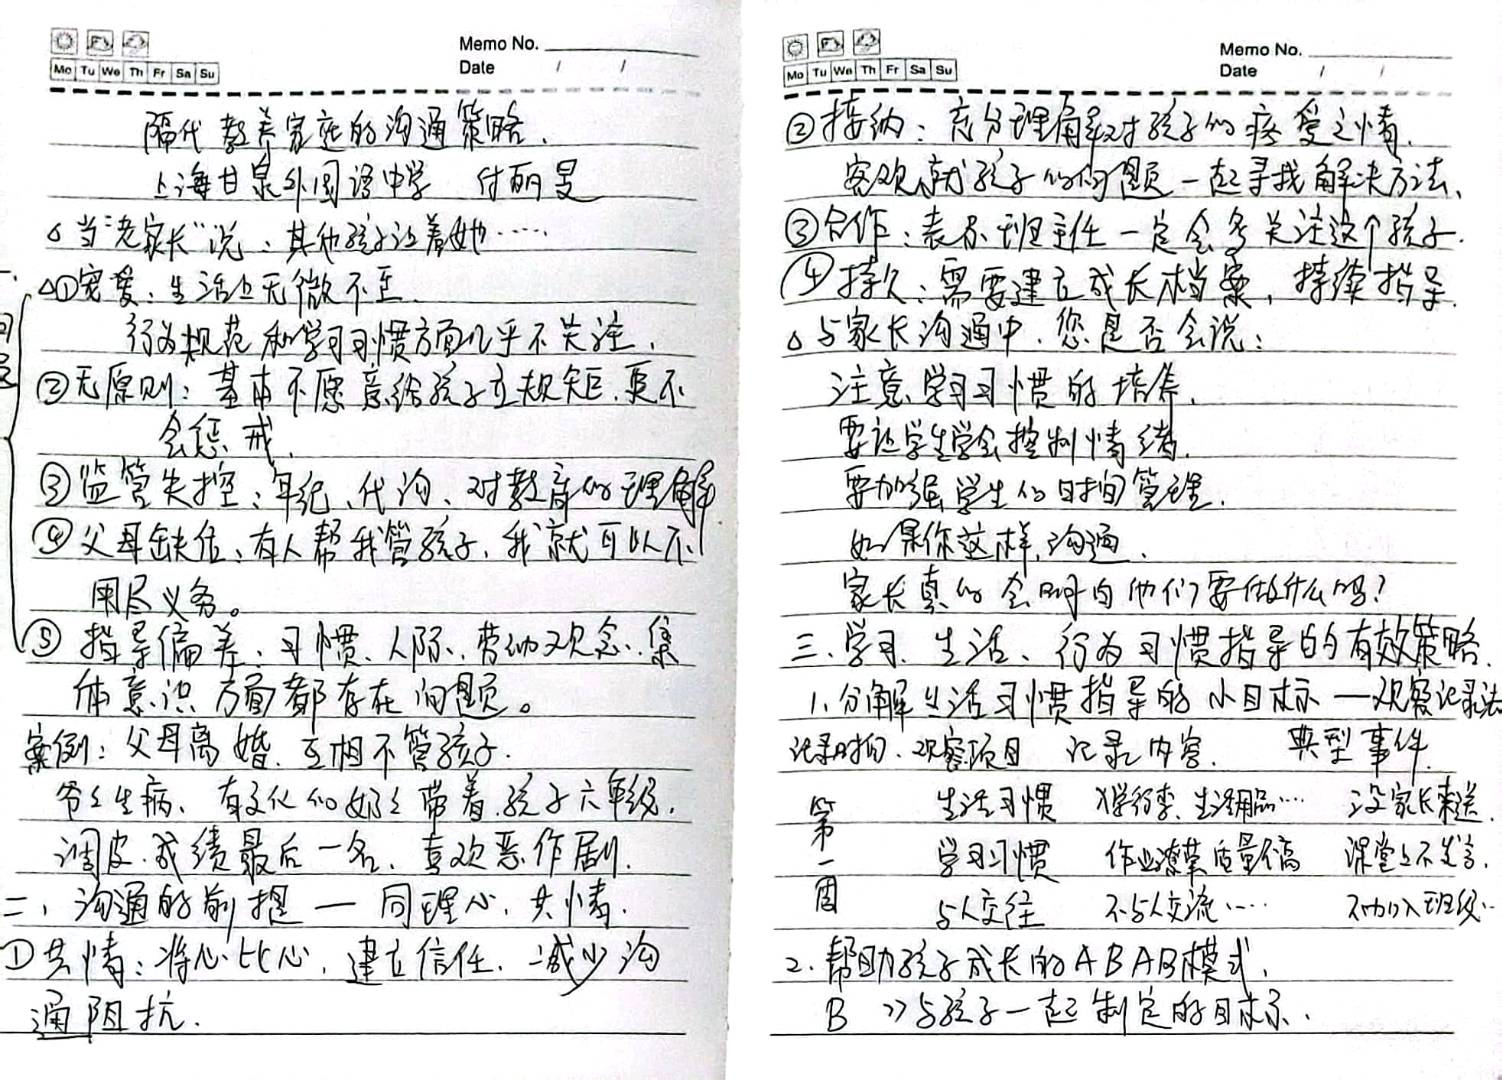 Memo No.
Date / /
Mo Tu We Th Fr Sa Su
隔代教养家庭的沟通策略.
上海甘泉外国语中学 付丽旻
当“老家长”说：其他孩子让着她……
一.
问题
①宠爱：生活上无微不至.
行为规范和学习习惯方面几乎不关注.
②无原则：基本不愿意给孩子立规矩.更不
会惩戒.
③监管失控：年纪、代沟、对教育的理解.
④父母缺位：有人帮我管孩子,我就可以不
用尽义务。
⑤指导偏差：习惯、人际、劳动观念、集
体意识方面都存在问题。
案例：父母离婚.互相不管孩子.
爷爷生病、有文化的奶奶带着.孩子六年级.
调皮.成绩最后一名、喜欢恶作剧.
二、沟通的前提—同理心、共情.
①共情：将心比心,建立信任.减少沟
通阻抗.
Memo No.
Date / /
Mo Tu We Th Fr Sa Su
②接纳：充分理解对孩子的疼爱之情.
客观就孩子的问题一起寻找解决方法.
③合作：表示班主任一定会多关注这个孩子.
④持久：需要建立成长档案,持续指导.
与家长沟通中,您是否会说：
注意学习习惯的培养.
要让学生学会控制情绪.
要加强学生的时间管理.
如果你这样沟通.
家长真的会明白他们要做什么吗?
三.学习、生活、行为习惯指导的有效策略.
1.分解生活习惯指导的小目标—观察记录法
记录时间.观察项目 记录内容. 典型事件.
第一周
生活习惯 学行李、生活用品… 没家长来送.
学习习惯 作业潦草质量不高 课堂上不发言.
与人交往 不与人交流…… 不加入班级…
2.帮助孩子成长的ABAB模式.
B >>与孩子一起制定的目标.